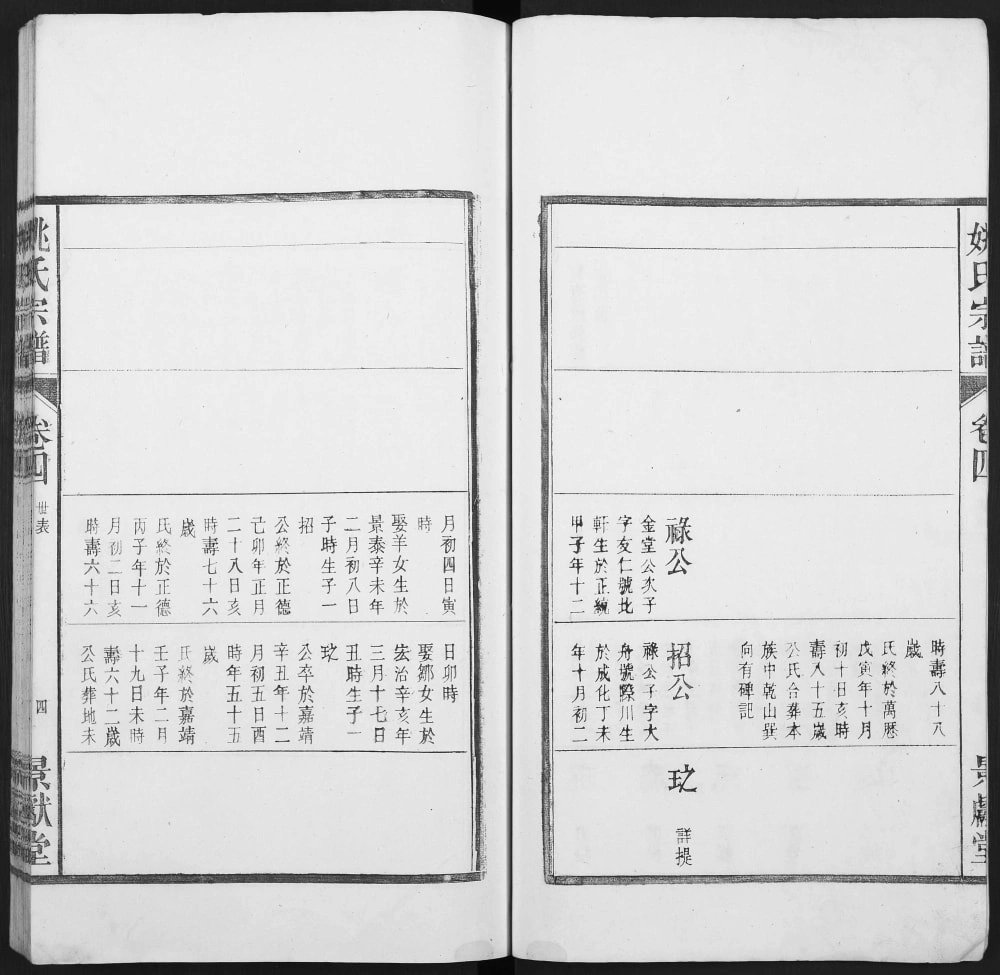 姚氏宗譜
卷四
景獻堂
祿公
金堂公次子
字友仁號北
軒生於正統
甲子年十二
時壽八十八
歲
氏終於萬曆
戊寅年十月
初十日亥時
壽八十五歲
公氏合葬本
族中乾山巽
向有碑記
招公
祿公子字大
舟號際川生
於成化丁未
年十月初二
玏
詳提
月初四日寅
時
娶羊女生於
景泰辛未年
二月初八日
子時生子一
招
公終於正德
己卯年正月
二十八日亥
時壽七十六
歲
氏終於正德
丙子年十一
月初二日亥
時壽六十六
日卯時
娶鄒女生於
宏治辛亥年
三月十七日
丑時生子一
玏
公卒於嘉靖
辛丑年十二
月初五日酉
時年五十五
歲
氏終於嘉靖
壬子年二月
十九日未時
壽六十二歲
公氏葬地未
姚氏宗譜
卷四
世表
四
景獻堂